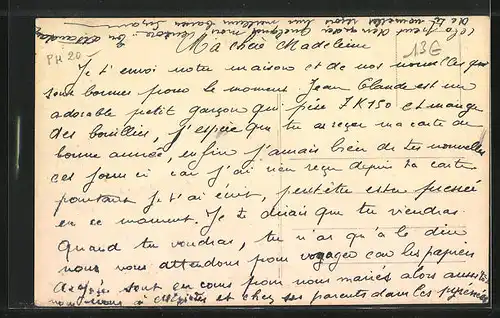 Ma chère Madeleine
13G
PH 20
Je t'envoi notre maison et de nos nouvelles qui
sont bonnes pour le moment Jean Claude est un
adorable petit garçon qui pèse 7K150 et mange
des bouillies, j'espère que tu as reçu ma carte de
bonne année, enfin j'aurais bien de tes nouvelles
ces jours ci car j'ai rien reçu depuis ta carte
pourtant je t'ai écrit, peut être es tu pressée
en ce moment. Je te disais que tu viendras
quand tu voudras, tu n'as qu'à le dire
nous nous attendons pour voyager car les papiers
sont en cours pour nous mariés alors aussitôt
nous irons à et chez ses parents dans les pyrénées
de tes nouvelles